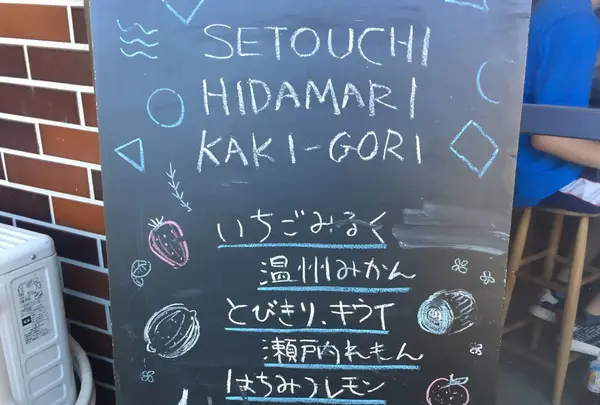 SETOUCHI
HIDAMARI
KAKI-GORI
いちごみるく
温州みかん
とびきり、キウイ
瀬戸内れもん
はちみつレモン